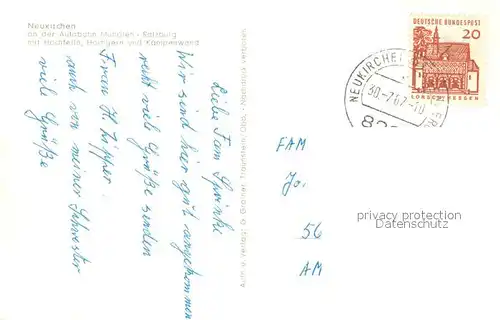 Neukirchen
an der Autobahn München - Salzburg
mit Hochfelln, Hochgern und Kampenwand
Liebe Fam
Wir sind hier gut angekommen
recht viele Grüße senden
Frau H.
auch von meiner Schwester
viele Grüße
Nachdruck verboten
DEUTSCHE BUNDESPOST
20
LORSCH/HESSEN
NEUKIRCHEN
30.-7.67-10
FAM
Jo.
56
AM
privacy protection
Datenschutz